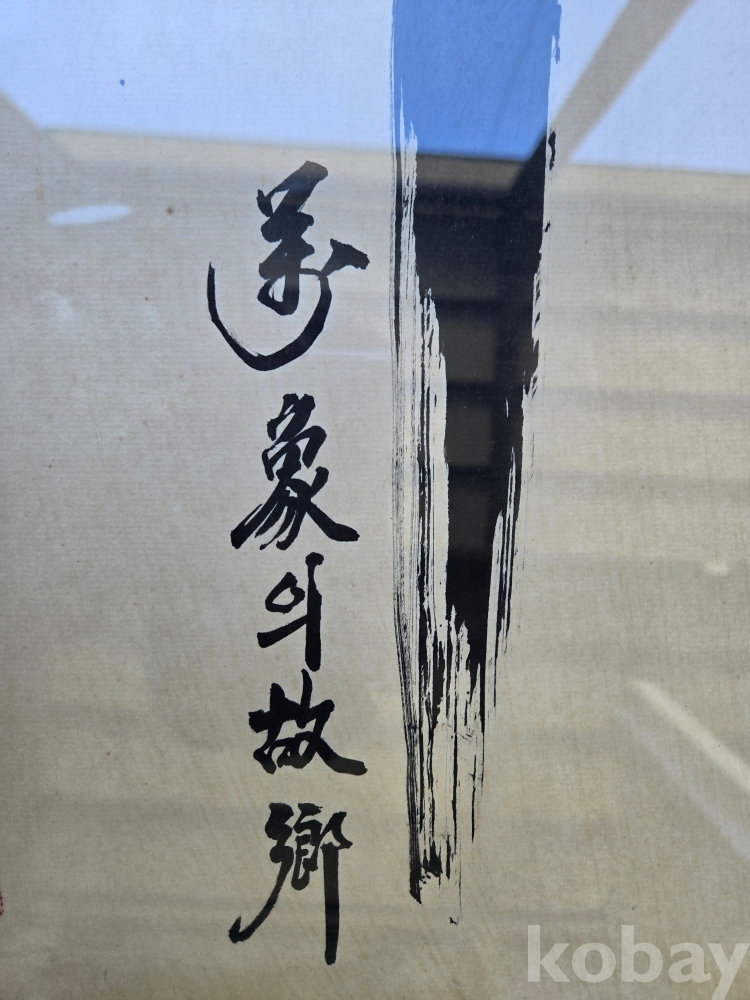 萬象의故鄕
kobay